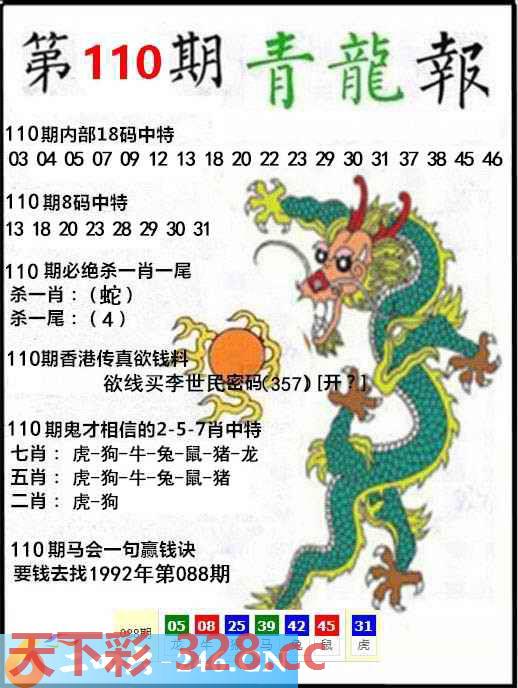 第110期青龍報
110期内部18码中特
03 04 05 07 09 12 13 18 20 22 23 29 30 31 37 38 45 46
110期8码中特
13 18 20 23 28 29 30 31
110期必绝杀一肖一尾
杀一肖：（蛇）
杀一尾：（4）
110期香港传真欲钱料
欲线买李世民密码(357)[开?]
110期鬼才相信的2-5-7肖中特
七肖： 虎-狗-牛-兔-鼠-猪-龙
五肖： 虎-狗-牛-兔-鼠-猪
二肖： 虎-狗
110期马会一句赢钱诀
要钱去找1992年第088期
088期 05 08 25 39 42 45 31
龙 牛 马 兔 鼠 虎
天下彩-328.cc